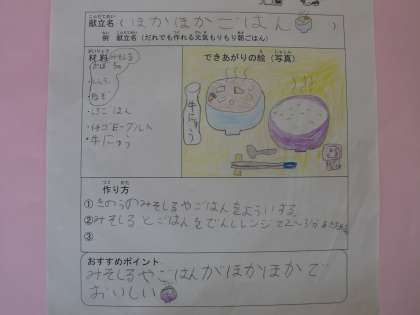 献立名（ほかほかごはん）
こんだてめい
例 献立名（だれでも作れる元気もりもり朝ごはん）
材料 みそしる
できあがりの絵（写真）
・ねぎ
ごはん
ヨーグルト
・牛にゅう
牛にゅう
作り方
①きのうのみそしるやごはんをよういする
②みそしるとごはんをでんしレンジで2〜3分あたため
③
おすすめポイント
みそしるやごはんがほかほかで
おいしい